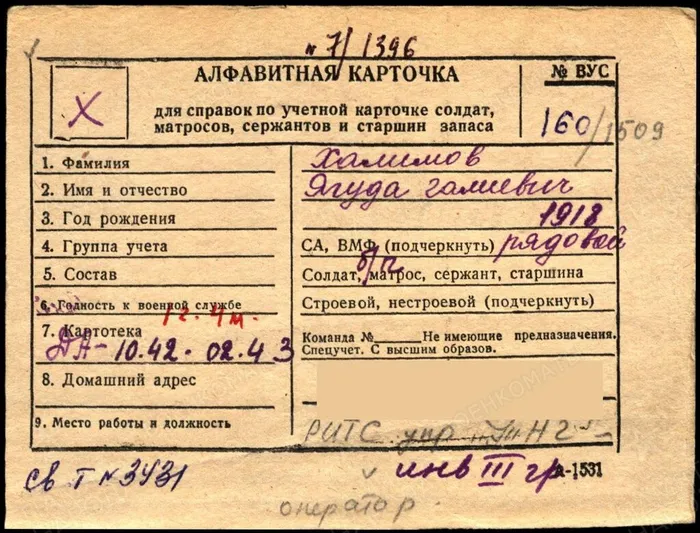 № 7/1396
АЛФАВИТНАЯ КАРТОЧКА
№ ВУС
Х
для справок по учетной карточке солдат,
матросов, сержантов и старшин запаса
160/1509
1. Фамилия
Халимов
2. Имя и отчество
Ягуда Галиевич
3. Год рождения
1918
4. Группа учета
СА, ВМФ (подчеркнуть) рядовой
5. Состав
б/п
Солдат, матрос, сержант, старшина
6. Годность к военной службе
Строевой, нестроевой (подчеркнуть)
1г. 4м.
7. Картотека
Команда №______ Не имеющие предназначения.
Спецучет. С высшим образов.
ДА - 10.42 - 02.43
8. Домашний адрес
9. Место работы и должность
РИТС упр
св Т № 3431
инв III гр
-1531
оператор